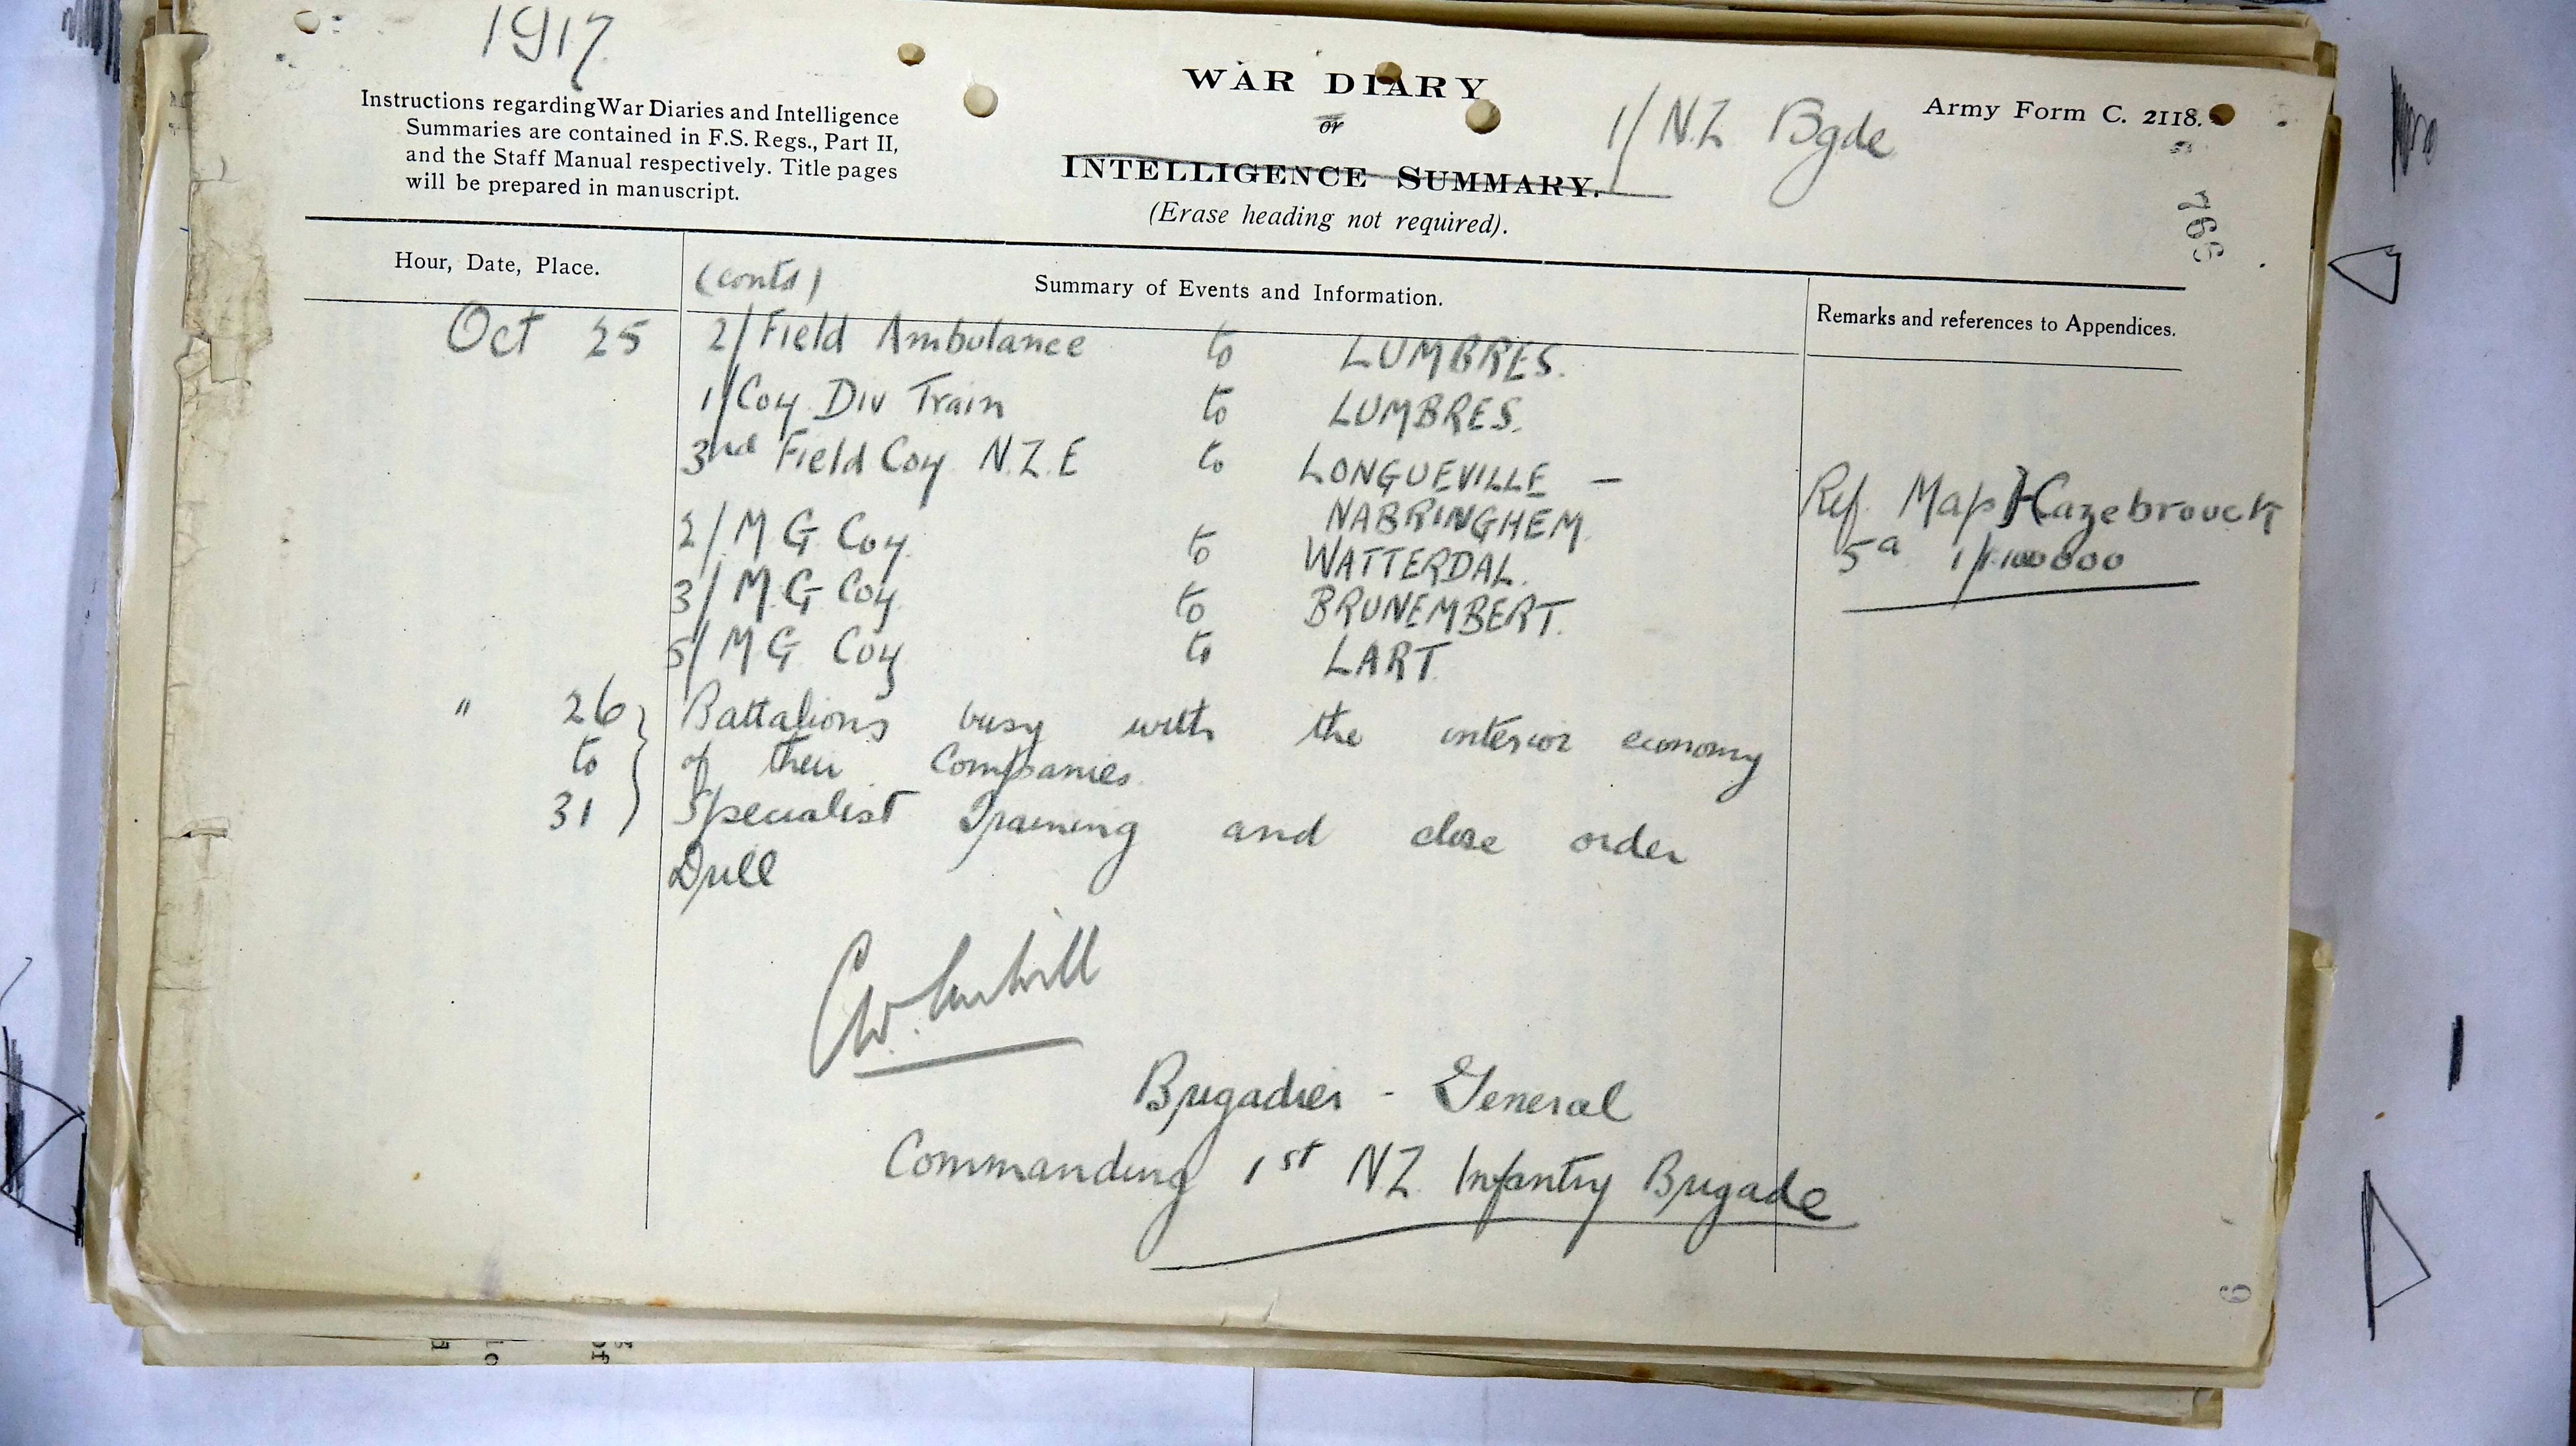 1917
Instructions regarding War Diaries and Intelligence
Summaries are contained in F.S. Regs., Part II,
and the Staff Manual respectively. Title pages
will be prepared in manuscript.
WAR DIARY
or
INTELLIGENCE SUMMARY.
(Erase heading not required).
1/ N.Z Bgde
Army Form C. 2118.
766
Hour, Date, Place.
(contd)
Summary of Events and Information.
Remarks and references to Appendices.
Oct 25 2/ Field Ambulance to LUMBRES.
1/ Coy Div Train to LUMBRES.
3nd Field Coy N.Z.E to LONGUEVILLE -
NABRINGHEM
2/ M G Coy. to WATTERDAL.
3/ M.G Coy. to BRUNEMBERT.
5/ M G Coy to LART.
Ref. Map Hazebrouck
5a 1/100000
" 26 Battalions busy with the interior economy
to of their Companies.
31 Specialist Training and close order
Drill
Brigadier - General
Commanding 1st N.Z. Infantry Brigade
9